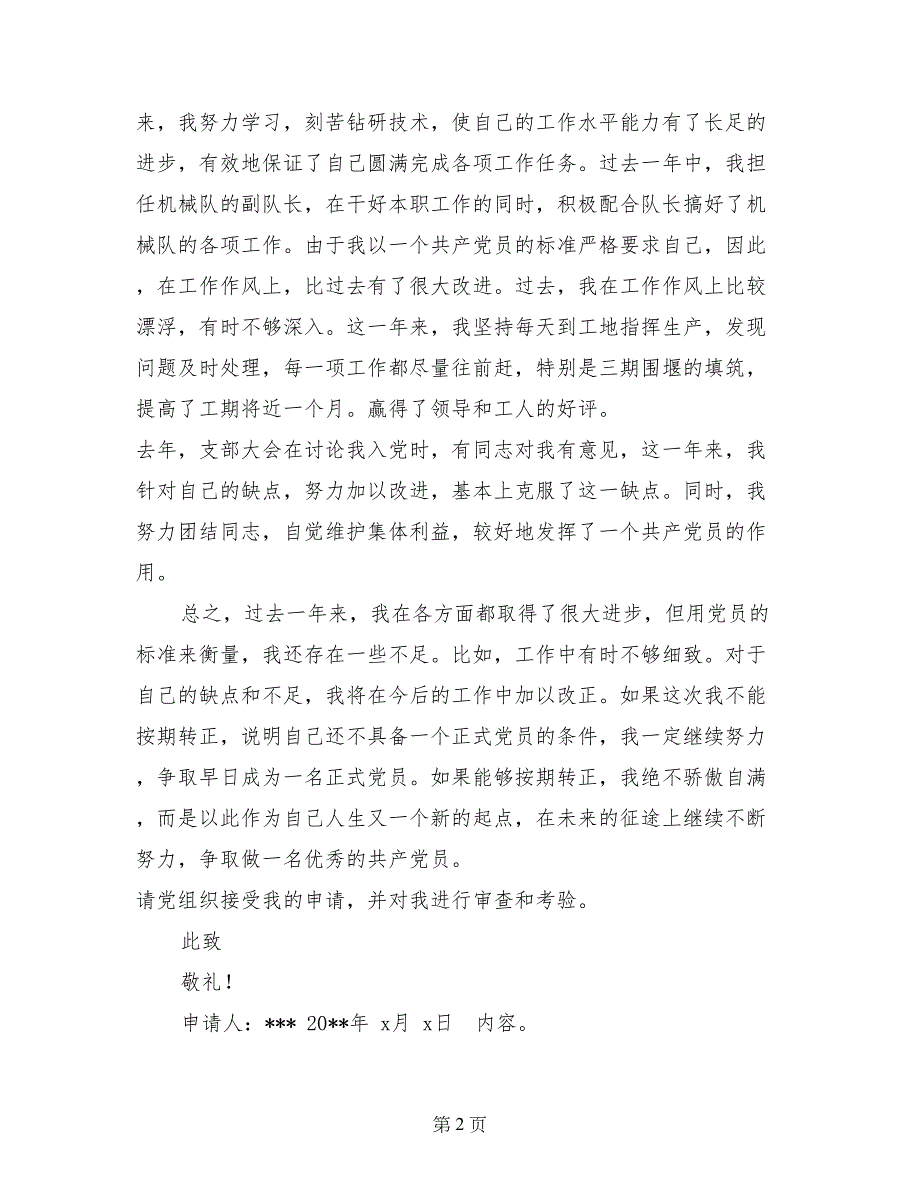 来，我努力学习，刻苦钻研技术，使自己的工作水平能力有了长足的
进步，有效地保证了自己圆满完成各项工作任务。过去一年中，我担
任机械队的副队长，在干好本职工作的同时，积极配合队长搞好了机
械队的各项工作。由于我以一个共产党员的标准严格要求自己，因此
，在工作作风上，比过去有了很大改进。过去，我在工作作风上比较
漂浮，有时不够深入。这一年来，我坚持每天到工地指挥生产，发现
问题及时处理，每一项工作都尽量往前赶，特别是三期围堰的填筑，
提高了工期将近一个月。赢得了领导和工人的好评。
去年，支部大会在讨论我入党时，有同志对我有意见，这一年来，我
针对自己的缺点，努力加以改进，基本上克服了这一缺点。同时，我
努力团结同志，自觉维护集体利益，较好地发挥了一个共产党员的作
用。
总之，过去一年来，我在各方面都取得了很大进步，但用党员的
标准来衡量，我还存在一些不足。比如，工作中有时不够细致。对于
自己的缺点和不足，我将在今后的工作中加以改正。如果这次我不能
按期转正，说明自己还不具备一个正式党员的条件，我一定继续努力
，争取早日成为一名正式党员。如果能够按期转正，我绝不骄傲自满
，而是以此作为自己人生又一个新的起点，在未来的征途上继续不断
努力，争取做一名优秀的共产党员。
请党组织接受我的申请，并对我进行审查和考验。
此致
敬礼！
申请人：*** 20**年 x月 x日　内容。
第 2 页